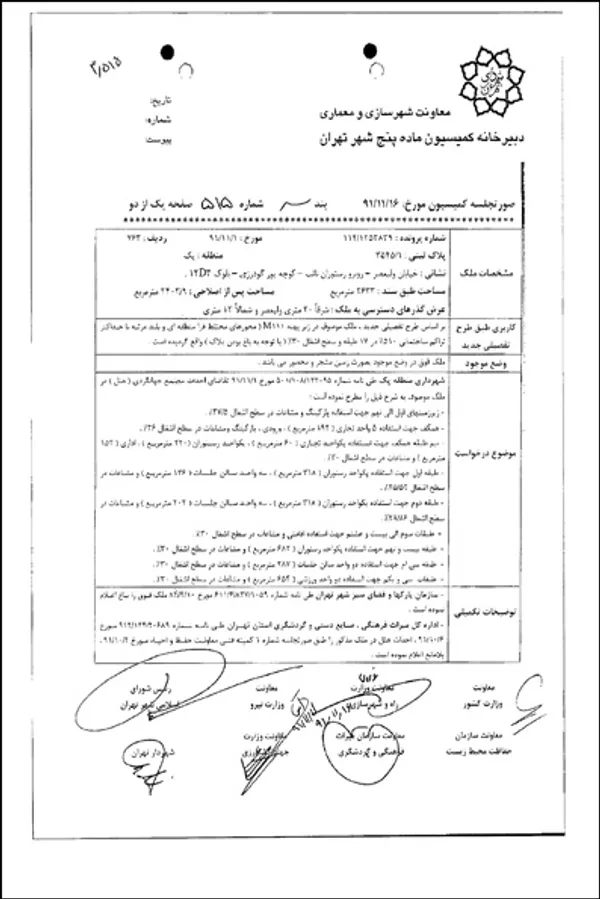 ۳/۵۱۵
معاونت شهرسازی و معماری
دبیرخانه کمیسیون ماده پنج شهر تهران
تاریخ:
شماره:
پیوست:
صورتجلسه کمیسیون مورخ: ۹۱/۱۱/۱۶ بند شماره ۵۱۵ صفحه یک از دو
مشخصات ملک
شماره پرونده : ۱۱۹/۱۲۵۲۸۳۹ مورخ : ۹۱/۱۱/۱ ردیف : ۷۶۳
پلاک ثبتی : ۳۵۲۵/۱ منطقه : یک
نشانی : خیابان ولیعصر – روبرو رستوران نائب – کوچه پور گودرزی – بلوک ۱۲D۳
مساحت طبق سند : ۲۶۳۳ مترمربع مساحت پس از اصلاحی : ۲۴۰۲/۹ مترمربع
عرض گذرهای دسترسی به ملک : شرقاً ۲۰ متری ولیعصر و شمالاً ۱۲ متری
کاربری طبق طرح تفصیلی جدید
بر اساس طرح تفصیلی جدید ، ملک موصوف در زیر پهنه M۱۱۱ ( محورهای مختلط فرا منطقه ای و بلند مرتبه با حداکثر
تراکم ساختمانی ۵۱۰٪ در ۱۷ طبقه و سطح اشغال ۳۰٪ ( با توجه به باغ بودن پلاک ) واقع گردیده است .
وضع موجود
ملک فوق در وضع موجود بصورت زمین مشجر و محصور می باشد .
موضوع درخواست
شهرداری منطقه یک طی نامه شماره ۵۰۱/۱۰۸/۱۲۲۰۹۵ مورخ ۹۱/۱۱/۱ تقاضای احداث مجتمع جهانگردی ( هتل ) در
ملک موصوف به شرح ذیل را مطرح نموده است :
- زیرزمینهای اول الی نهم جهت استفاده پارکینگ و مشاعات در سطح اشغال ۳۷/۵٪
- همکف جهت استفاده ۵ واحد تجاری ( ۱۹۲ مترمربع ) ، ورودی ، پارکینگ ومشاعات در سطح اشغال ۲۶٪
- نیم طبقه همکف جهت استفاده یکواحد تجاری ( ۶۰ مترمربع ) ، یکواحد رستوران ( ۲۲۰ مترمربع ) ، اداری ( ۱۵۲
مترمربع ) و مشاعات در سطح اشغال ۳۰٪
- طبقه اول جهت استفاده یکواحد رستوران ( ۳۱۸ مترمربع ) ، سه واحد سالن جلسات ( ۱۳۶ مترمربع ) و مشاعات در
سطح اشغال ۲۵/۵۲٪
- طبقه دوم جهت استفاده یکواحد رستوران ( ۳۱۸ مترمربع ) ، سه واحد سالن جلسات ( ۲۰۲ مترمربع ) و مشاعات در
سطح اشغال ۲۹/۸۶٪
- طبقات سوم الی بیست و هشتم جهت استفاده اقامتی و مشاعات در سطح اشغال ۳۰٪
- طبقه بیست و نهم جهت استفاده یکواحد رستوران ( ۶۸۲ مترمربع ) و مشاعات در سطح اشغال ۳۰٪
- طبقه سی ام جهت استفاده دو واحد سالن جلسات ( ۲۸۷ مترمربع ) و مشاعات در سطح اشغال ۳۰٪
- طبقات سی و یکم جهت استفاده دو واحد ورزشی ( ۶۵۴ مترمربع ) و مشاعات در سطح اشغال ۳۰٪
توضیحات تکمیلی
- سازمان پارکها و فضای سبز شهر تهران طی نامه شماره ملک فوق را باغ اعلام
نموده است .
- اداره کل میراث فرهنگی ، صنایع دستی و گردشگری استان تهران طی نامه شماره ۹۱۲/۱۴۲/۲۰۶۸۹ مورخ
۹۱/۱۰/۶ ، احداث هتل در ملک مذکور را طبق صورتجلسه شماره ۶ کمیته فنی معاونت حفظ و احیاء مورخ ۹۱/۱۰/۴
بلامانع اعلام نموده است .
معاونت وزارت کشور
معاونت وزارت راه و شهرسازی
معاونت وزارت نیرو
رئیس شورای اسلامی شهر تهران
معاونت سازمان حفاظت محیط زیست
معاونت سازمان میراث فرهنگی و گردشگری
معاونت وزارت جهاد کشاورزی
شهردار تهران